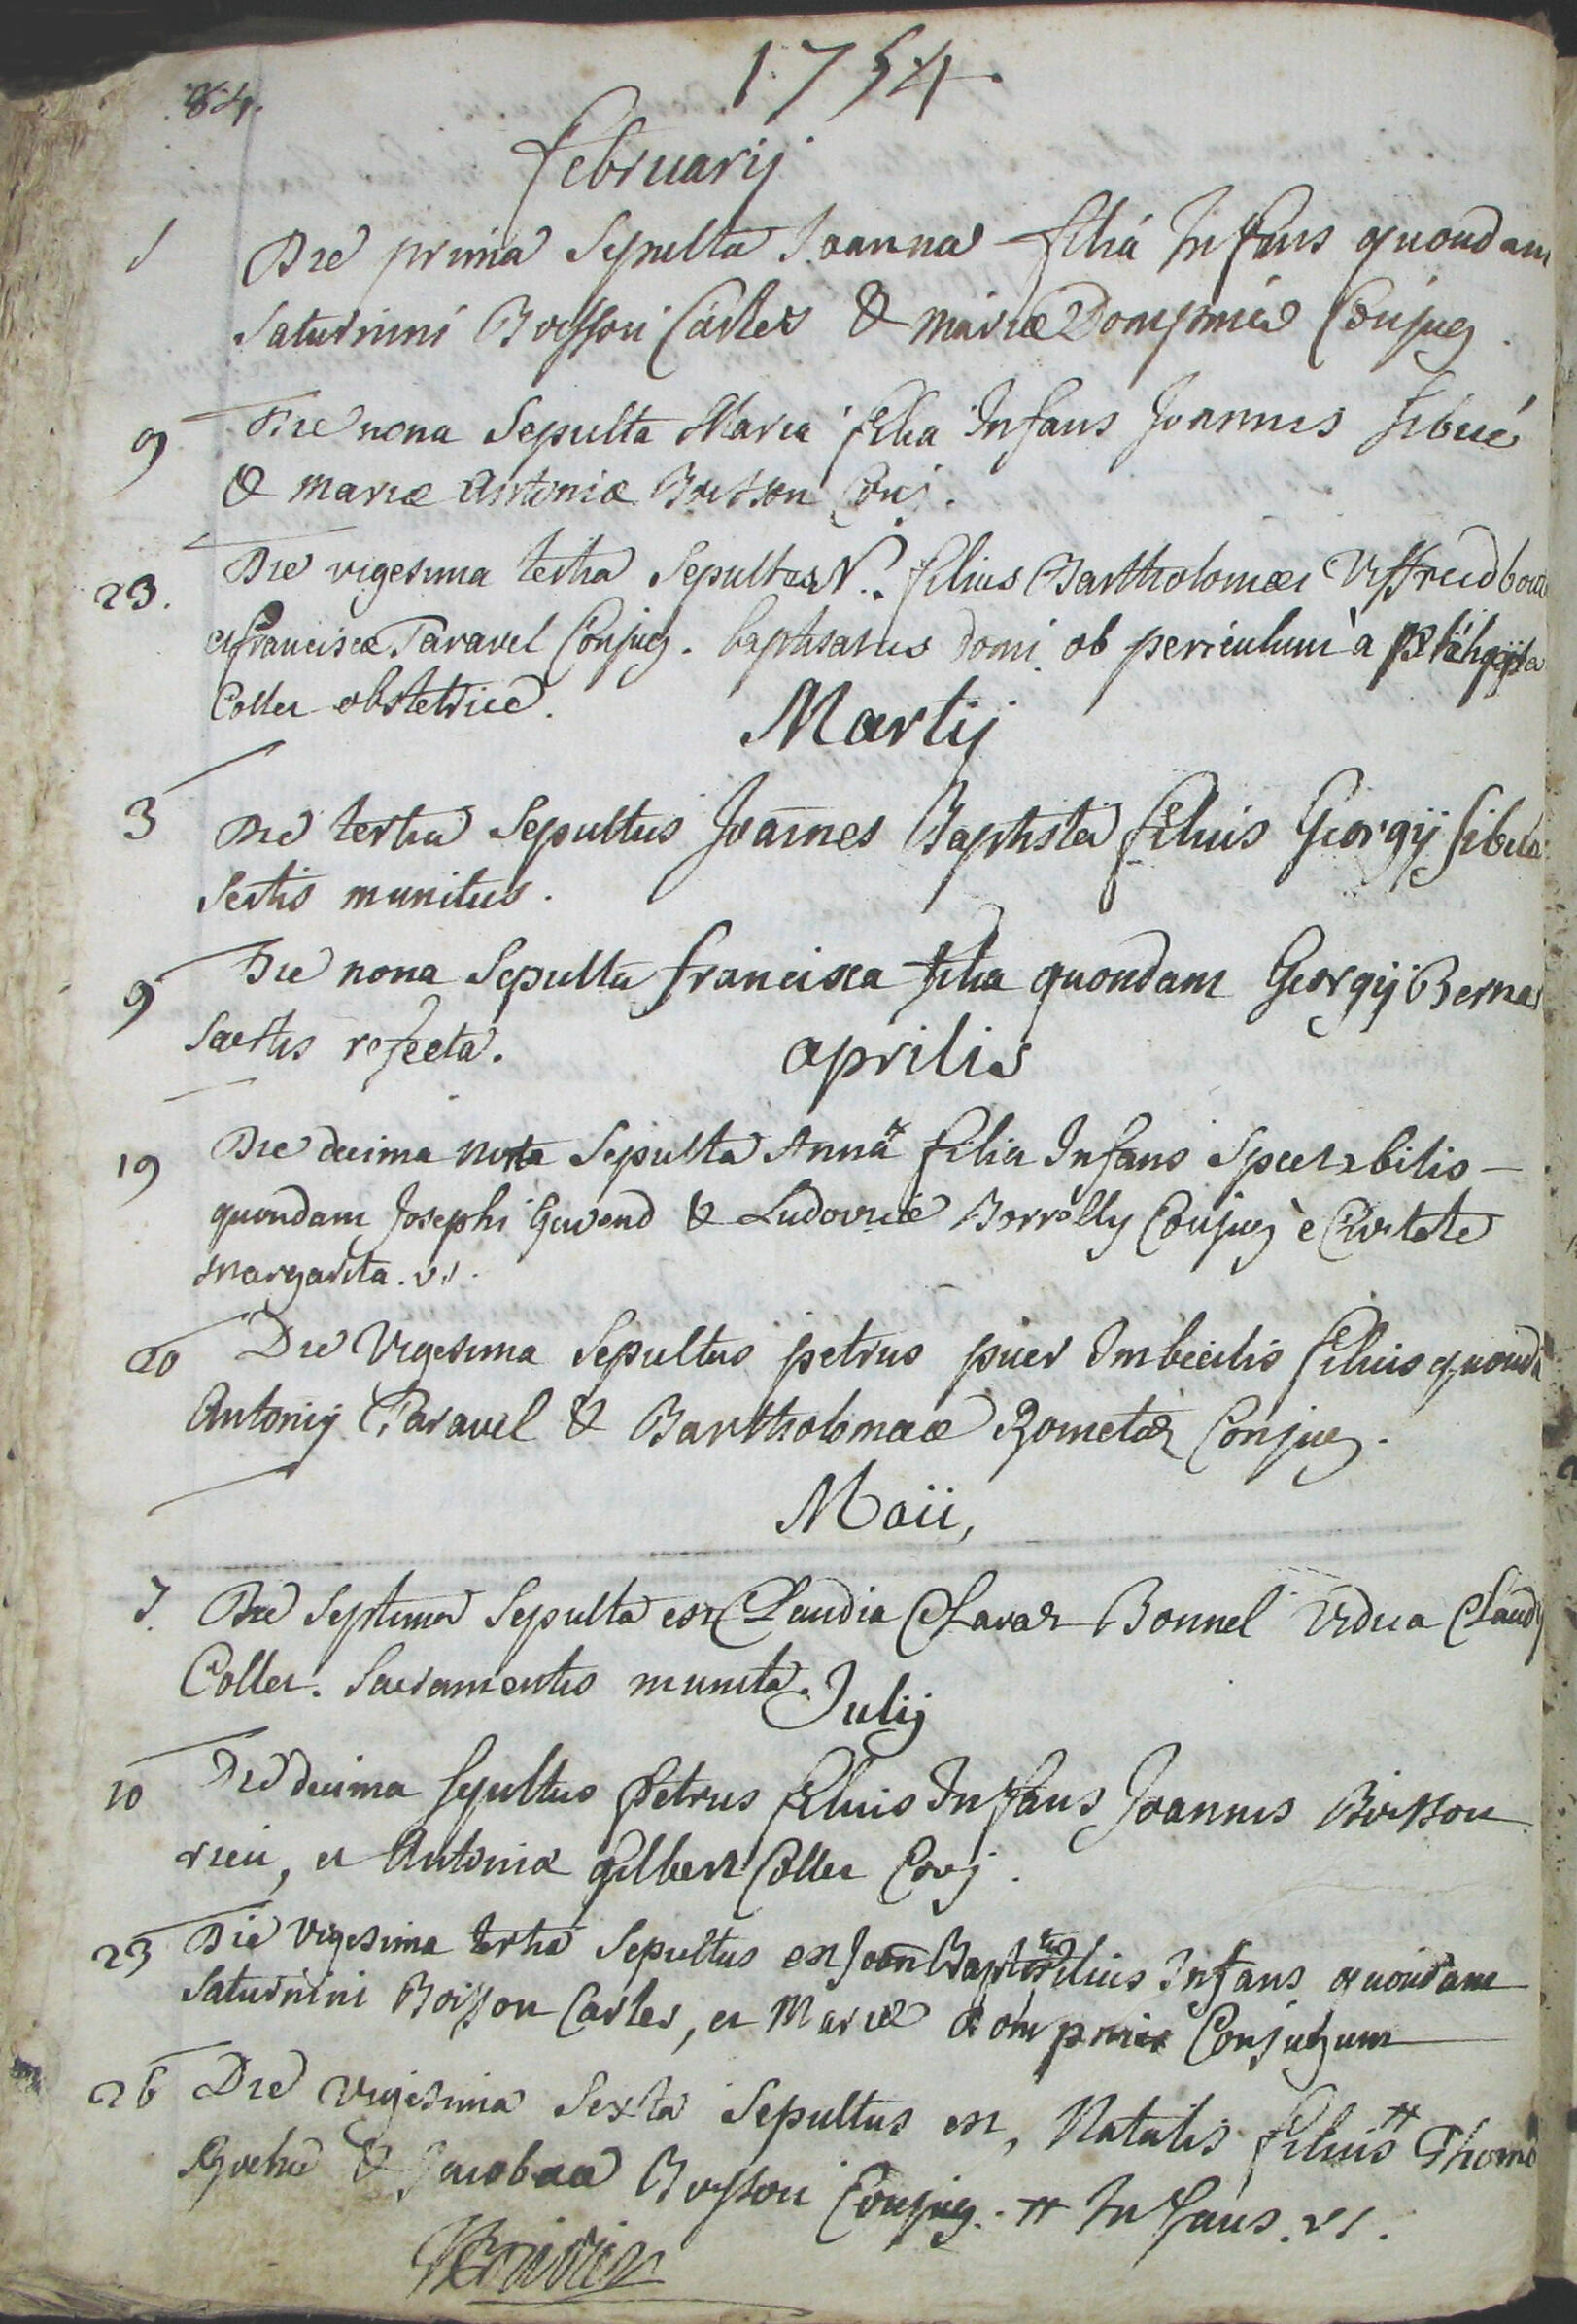 1754.
84.
februarij
1 Die prima Sepulta Joanna filia Infans quondam
Saturnini Boisson Carles & mariæ Dompnie Conjug.
9 Die nona Sepulta Maria filia Infans Joannis Sibué
& mariæ Antoniæ Boisson Conj.
23. Die vigesima tertia Sepultus N. filius Bartholomæi
et franciscæ Taravel Conjug. baptisatus domi ob periculum a
Coller obstetrice.
Martij
3 Die tertia Sepultus Joannes Baptista filius Georgij Sibué
Sctis munitus.
9 Die nona Sepulta francisca filia quondam Georgij
Sactis refecta.
aprilis
19 Die decima nona Sepulta Anna # filia Infans Spectabilis
quondam Josephi & Ludovicæ Borrelly Conjug è Civitate
Margarita. v.
20 Die Vigesima Sepultus petrus puer Imbecilis filius quonda
Antonij Taravel & Bartholomææ Rometaz Conjug.
Maii,
7. Die Septima Sepulta est Claudia Claraz Bonnel Vidua Claudij
Coller. Sacramentis munita.
Julij
10 Die decima Sepultus Petrus filius Infans Joannis Boisson
rieu, et Antoniæ gilbert Coller Conj.
23 Die Vigesima tertia Sepultus est Joan Bapta filius Infans quondam
Saturnini Boisson Carles, et Mariæ dompnie Conjugum
26 Die Vigesima Sexta Sepultus est, Natalis filius # Thomæ
& Jacobææ Boisson Conjug. # Infans. v.